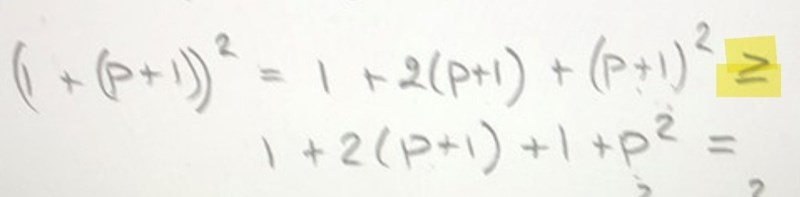 (1 + (p+1))² = 1 + 2(p+1) + (p+1)² ≥
1 + 2(p+1) + 1 + p² =